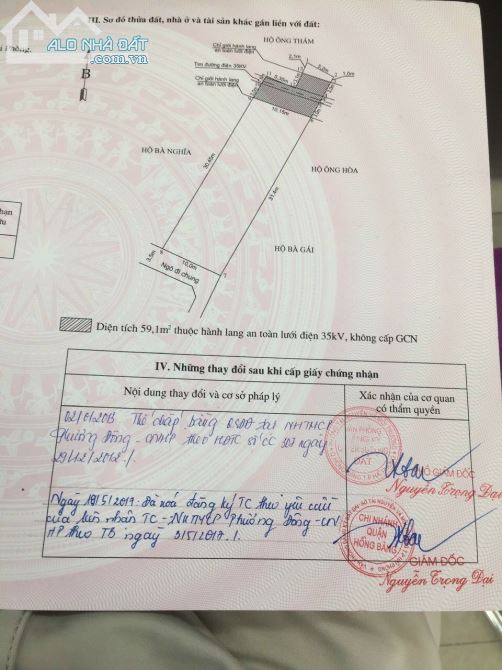 ALO NHÀ ĐẤT
.com.vn
III. Sơ đồ thửa đất, nhà ở và tài sản khác gắn liền với đất:
B
HỘ ÔNG THẮM
2,1m
1,0m
Chỉ giới hành lang
an toàn lưới điện
Tim đường điện 35KV
Chỉ giới hành lang
an toàn lưới điện
10,15m
HỘ BÀ NGHĨA
HỘ ÔNG HÒA
30,45m
33,4m
HỘ BÀ GÁI
3,5m
10,0m
Ngõ đi chung
Diện tích 59,1m² thuộc hành lang an toàn lưới điện 35kV, không cấp GCN
IV. Những thay đổi sau khi cấp giấy chứng nhận
Nội dung thay đổi và cơ sở pháp lý
Xác nhận của cơ quan
có thẩm quyền
Thế chấp bằng QSDĐ tại NHTMCP
Phương Đông - CNHP theo HĐTC số CC ngày
GIÁM ĐỐC
Nguyễn Trọng Đại
Ngày 18/5/2017. Đã xoá đăng ký TC theo yêu cầu
của bên nhận TC - NHTMCP Phương Đông - CN
HP theo TB ngày 3/5/2017.
CHI NHÁNH
QUẬN
HỒNG BÀNG
GIÁM ĐỐC
Nguyễn Trọng Đại